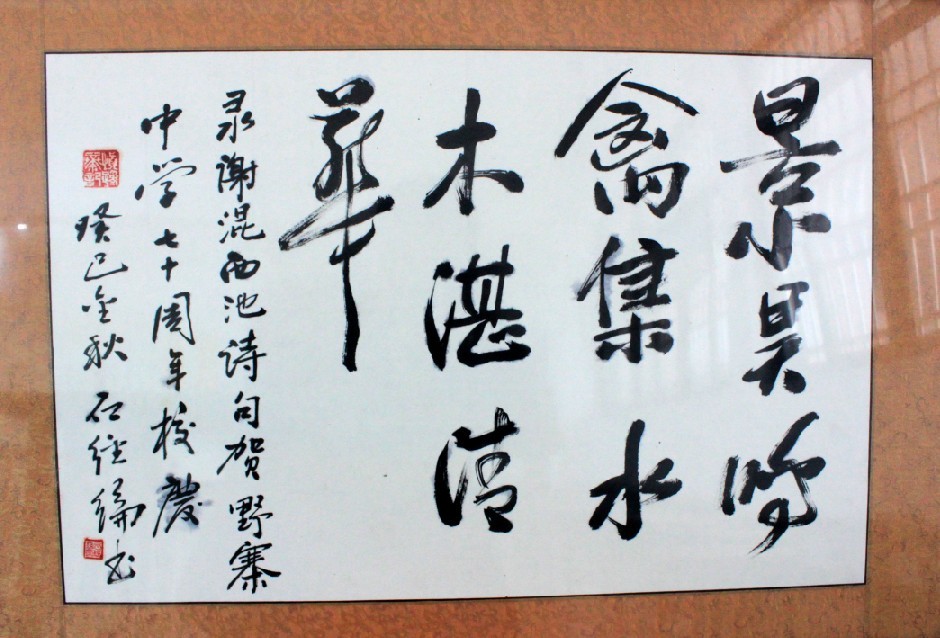 景昊鸣
禽集水
木湛清
華
录謝混西池诗句贺野寨
中学七十周年校慶
癸巳金秋 石经纶书